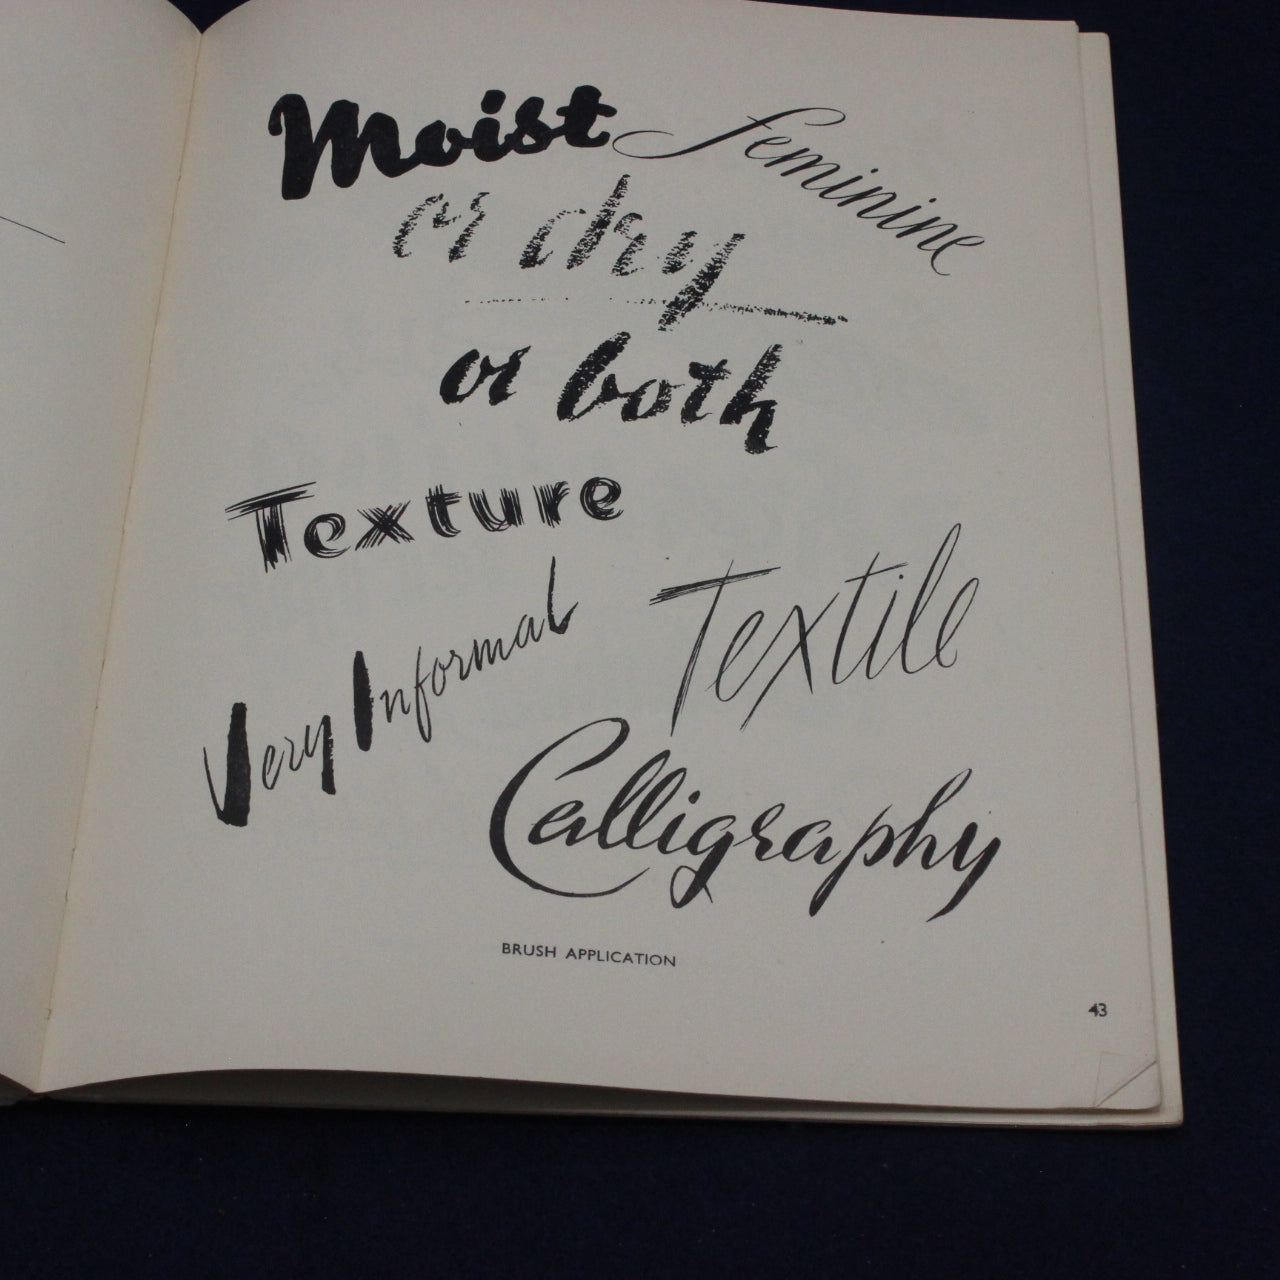 Moist feminine
or dry
or both
Texture
Textile
Very Informal
Calligraphy
BRUSH APPLICATION
43